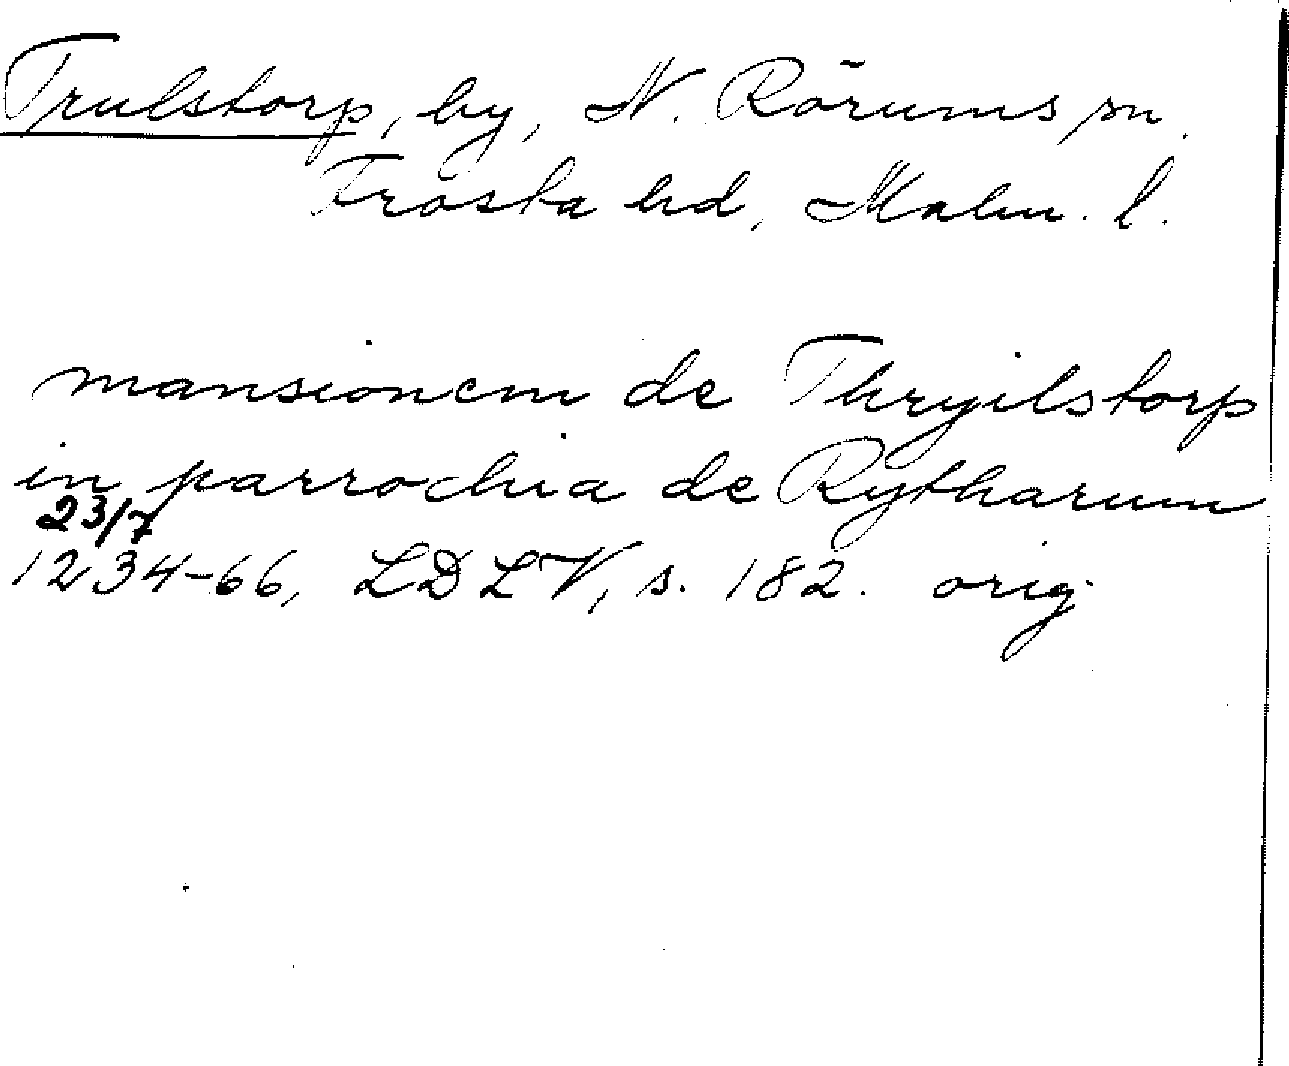 Trulstorp, by, N. Rörums sn.
Frosta hd, Malm. l.
mansionem de Thryilstorp
in parrochia de Rytharum
23/7
1234-66, LDLV, s. 182. orig.